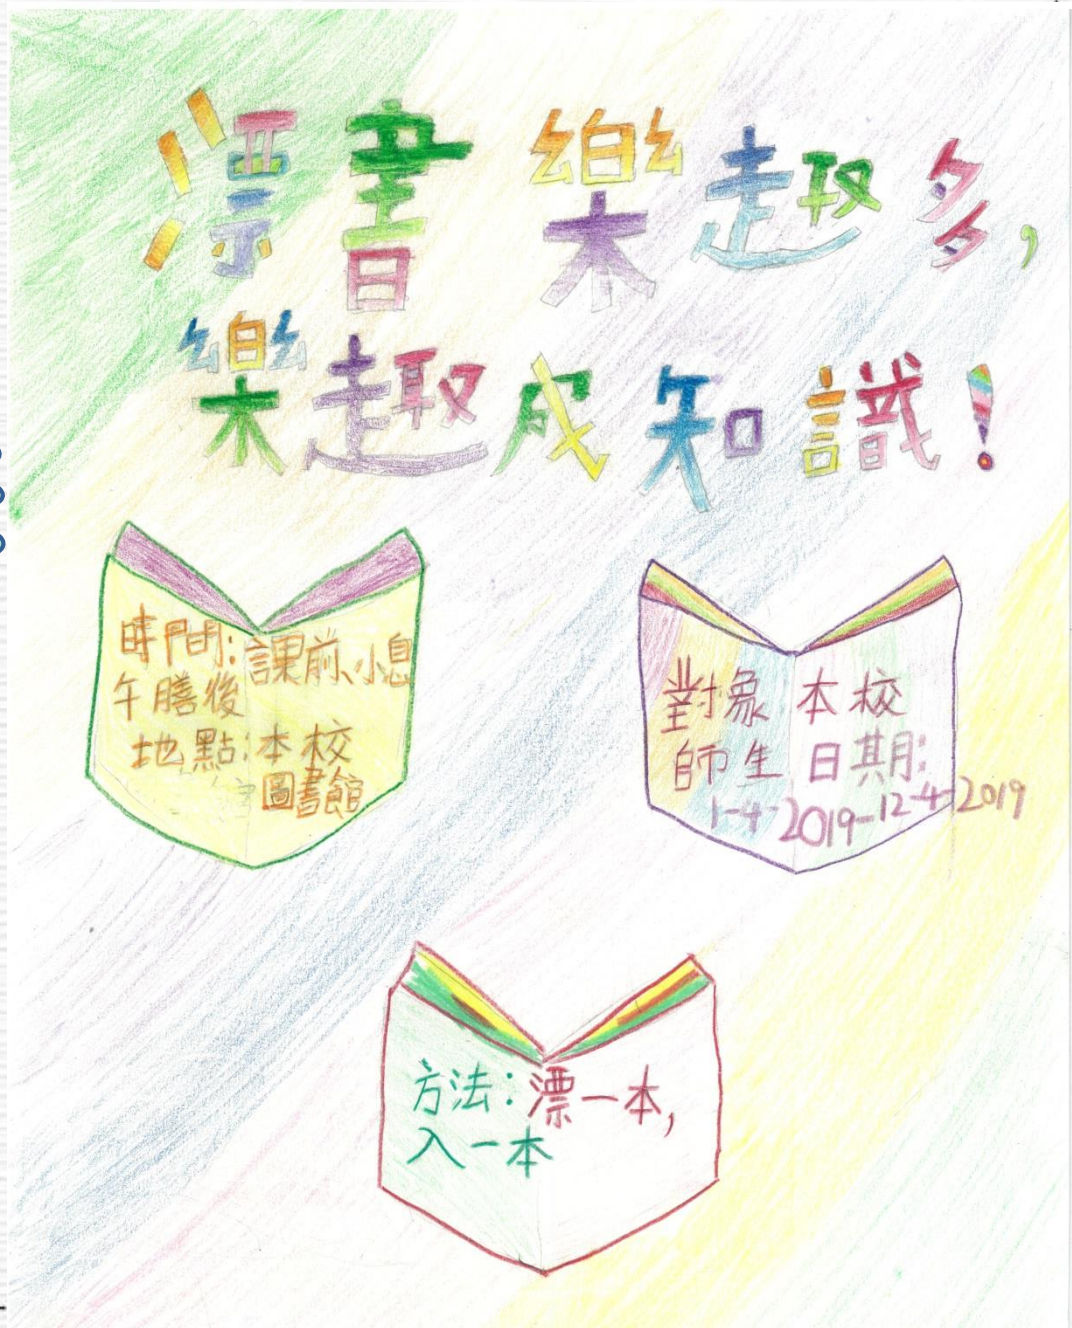 漂書樂趣多,
樂趣成知識！
時間:課前、小息
午膳後
地點:本校
圖書館
對象 本校
師生 日期:
1-4-2019-12-4-2019
方法:漂一本,
入一本